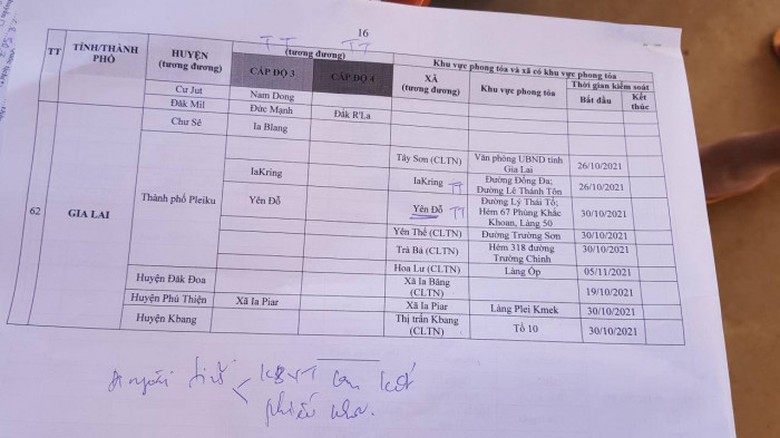 16
TT TỈNH/THÀNH PHỐ HUYỆN (tương đương) (tương đương) Khu vực phong tỏa và xã có khu vực phong tỏa
CẤP ĐỘ 3 CẤP ĐỘ 4 XÃ (tương đương) Khu vực phong tỏa Thời gian kiểm soát
Bắt đầu Kết thúc
Cư Jut Nam Dong
Đăk Mil Đức Mạnh Đắk R'La
62 GIA LAI
Chư Sê Ia Blang
Thành phố Pleiku
Tây Sơn (CLTN) Văn phòng UBND tỉnh Gia Lai 26/10/2021
IaKring IaKring TT Đường Đống Đa; Đường Lê Thánh Tôn 26/10/2021
Yên Đỗ Yên Đỗ TT Đường Lý Thái Tổ; Hẻm 67 Phùng Khắc Khoan, Làng 50 30/10/2021
Yên Thế (CLTN) Đường Trường Sơn 30/10/2021
Trà Bá (CLTN) Hẻm 318 đường Trường Chinh 30/10/2021
Hoa Lư (CLTN) Làng Ốp 05/11/2021
Huyện Đăk Đoa Xã Ia Băng (CLTN) 19/10/2021
Huyện Phú Thiện Xã Ia Piar Xã Ia Piar Làng Plei Kmek 30/10/2021
Huyện Kbang Thị trấn Kbang (CLTN) Tổ 10 30/10/2021